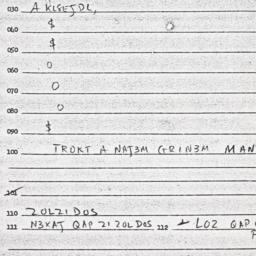 030 A KLSEJDL,
040 $
050 $
050 O
060 O
070 O
080 $
090
100 TROKT A NAT3M GRIN3M MAN
101
110 ZOLZIDOS
111 N3XAT QAP ZI ZOLDOS 112 + LOZ QAP